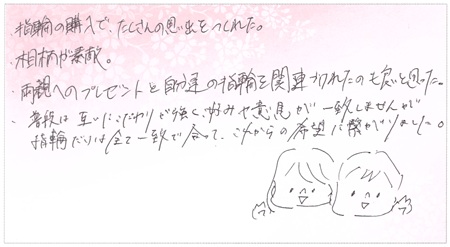 ・指輪の購入で、たくさんの思い出をつくれた。
・相柄が素敵。
・両親へのプレゼントと自分達の指輪を関連づけれたのも良いと思った。
・普段は互いにこだわりが強く、好みや意見が一致しませんが
指輪だけは全て一致で合って、これからの希望に繋がりました。